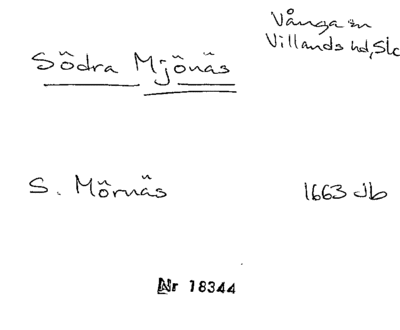 Vånga sn
Villands hd, Slc
Södra Mjönäs
S. Mörnäs 1663 Jb
Nr 18344